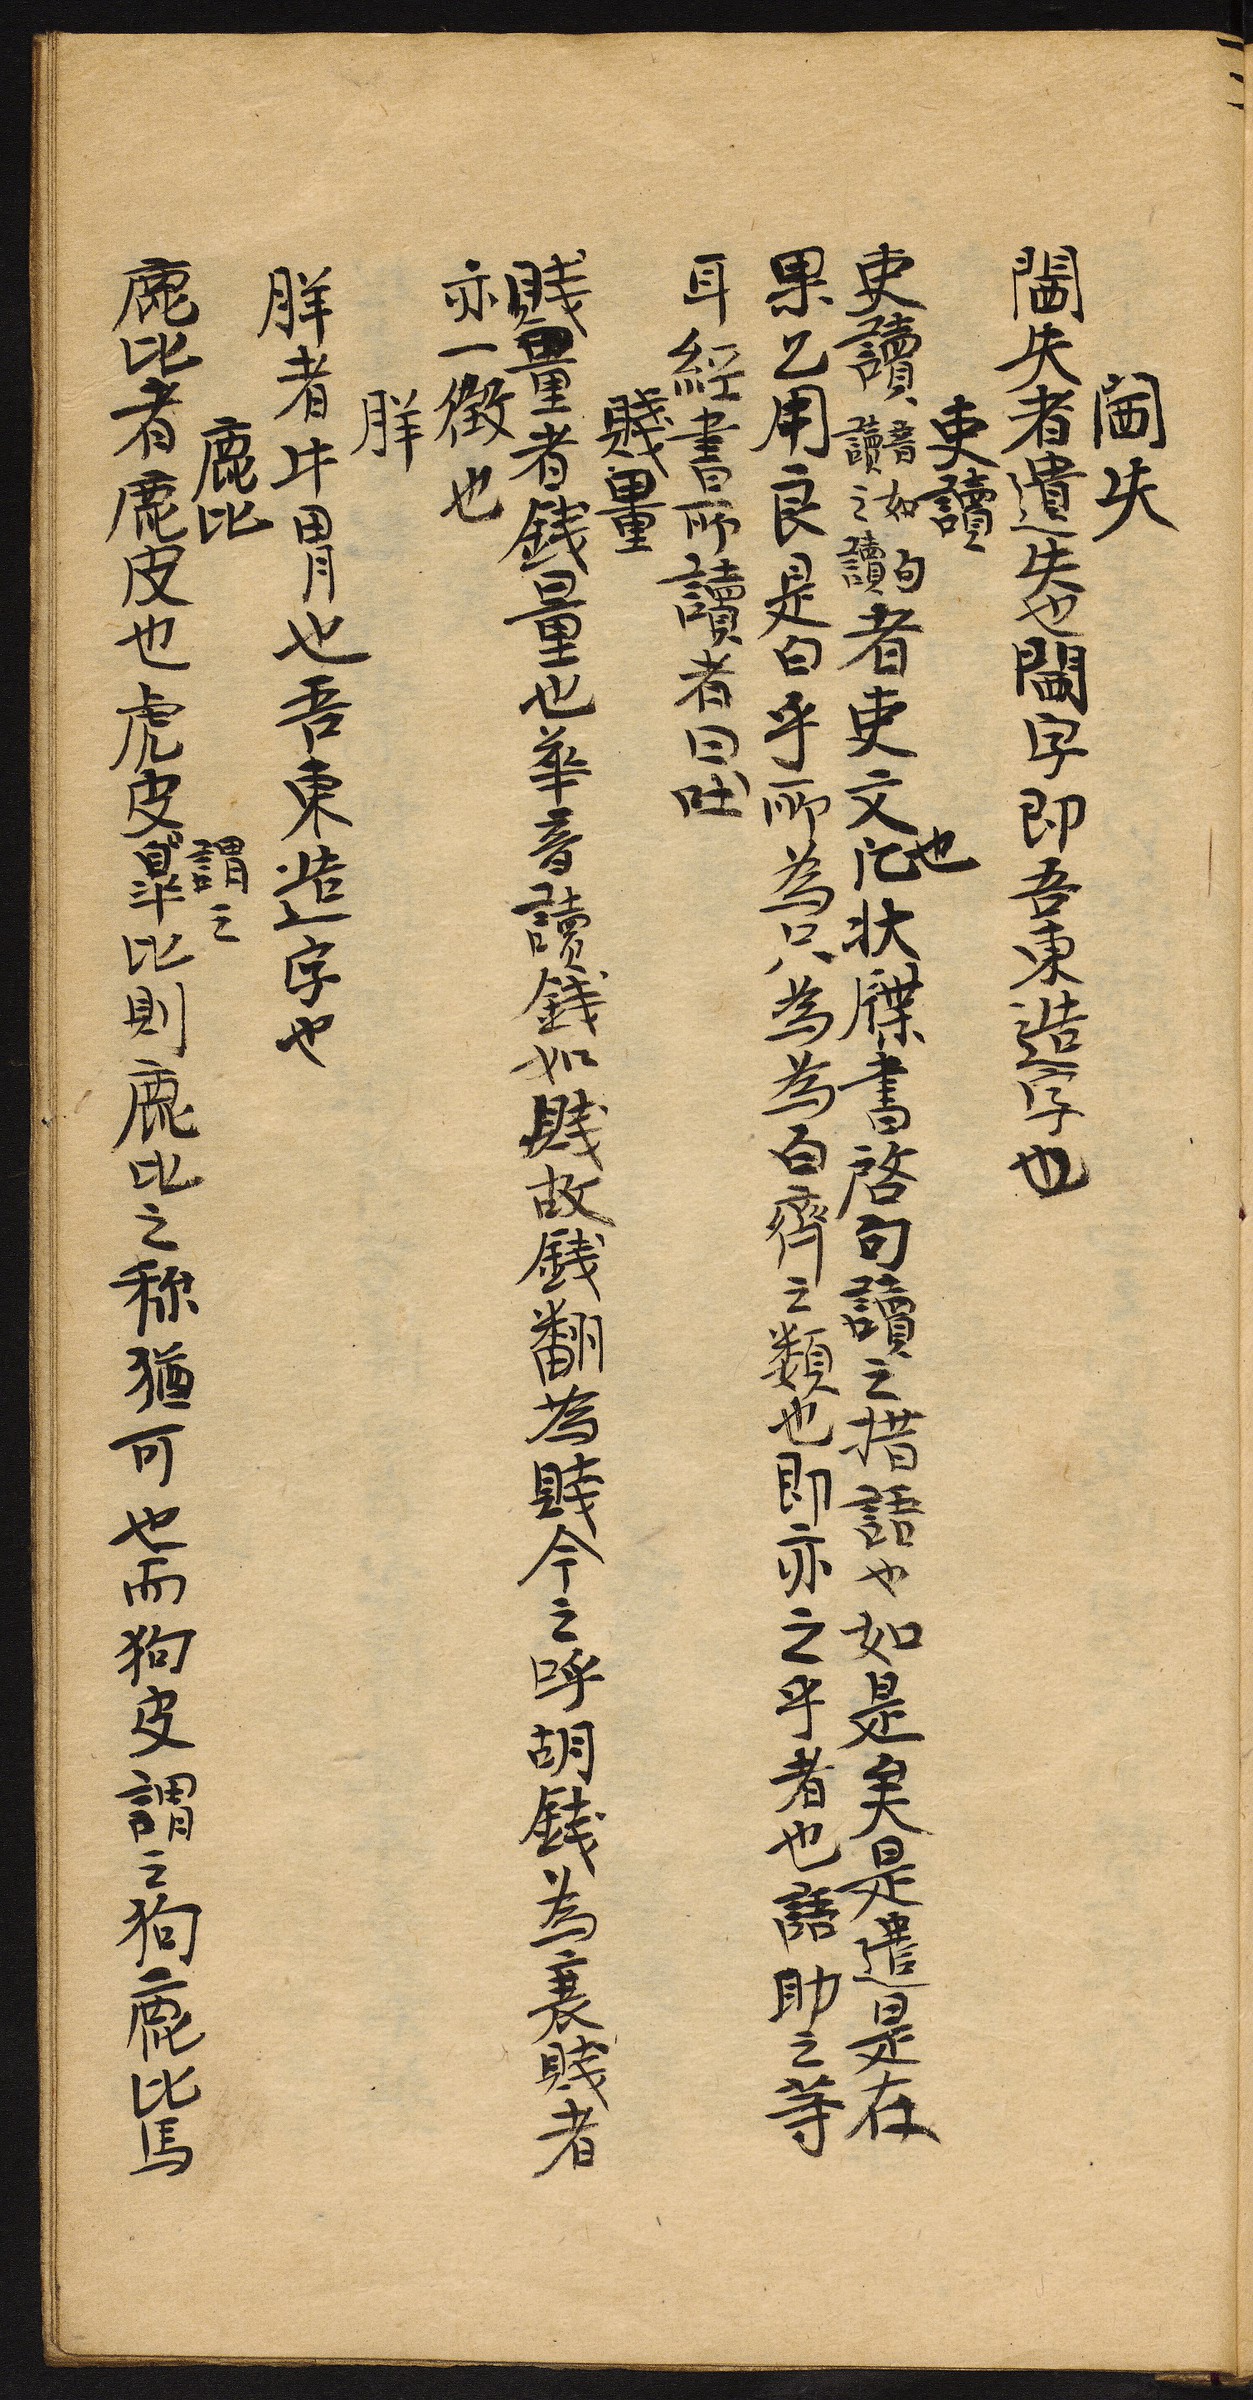 閪失
閪失者遺失也閪字即吾東造字也
吏讀
吏讀音如句讀之讀者吏文也凡狀牒書啓句讀之措語也如是矣是遣是在
果乙用良是白乎所為只為為白齊之類也即亦之乎者也語助之等
耳經書所讀者曰吐
賎量
賎量者銭量也華音讀銭如賎故銭翻為賎今之呼胡銭為賎者
亦一徵也
⿰月羊
⿰月羊者牛胃也吾東造字也
鹿比
鹿比者鹿皮也虎皮謂之皐比則鹿比之称猶可也而狗皮謂之狗鹿比焉